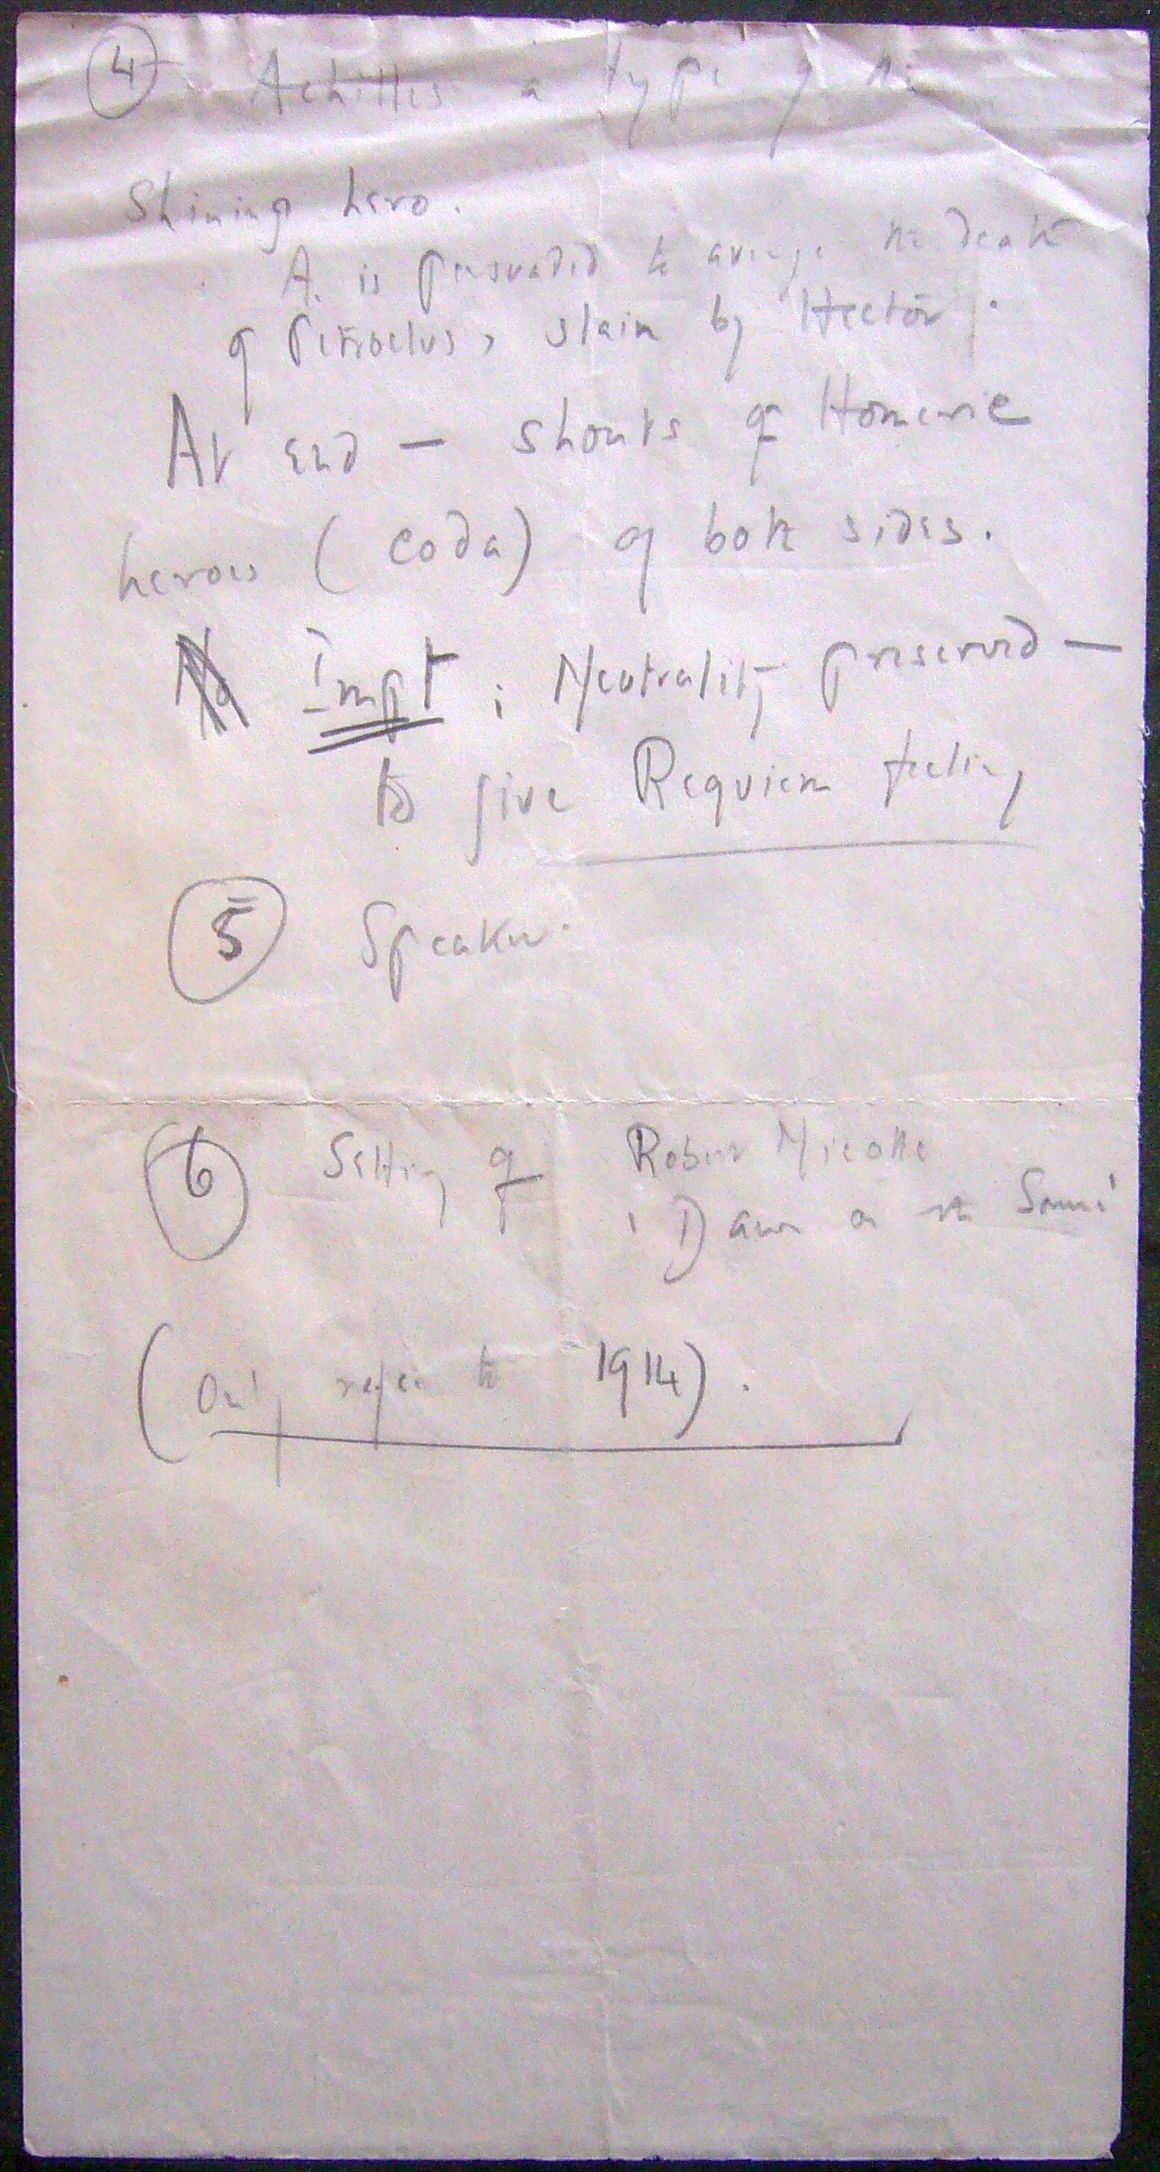 4 Achilles a type of the
Shining hero.
A. is persuaded to avenge the death
of Petroclus, slain by Hector.
At end — shouts of Homeric
heroes (coda) of both sides.
No Impt; Neutrality preserved —
to give Requiem feeling
5 Speaker.
6 Setting of Robert Nicolls
'Dawn on the Somme'
(Only refer to 1914).